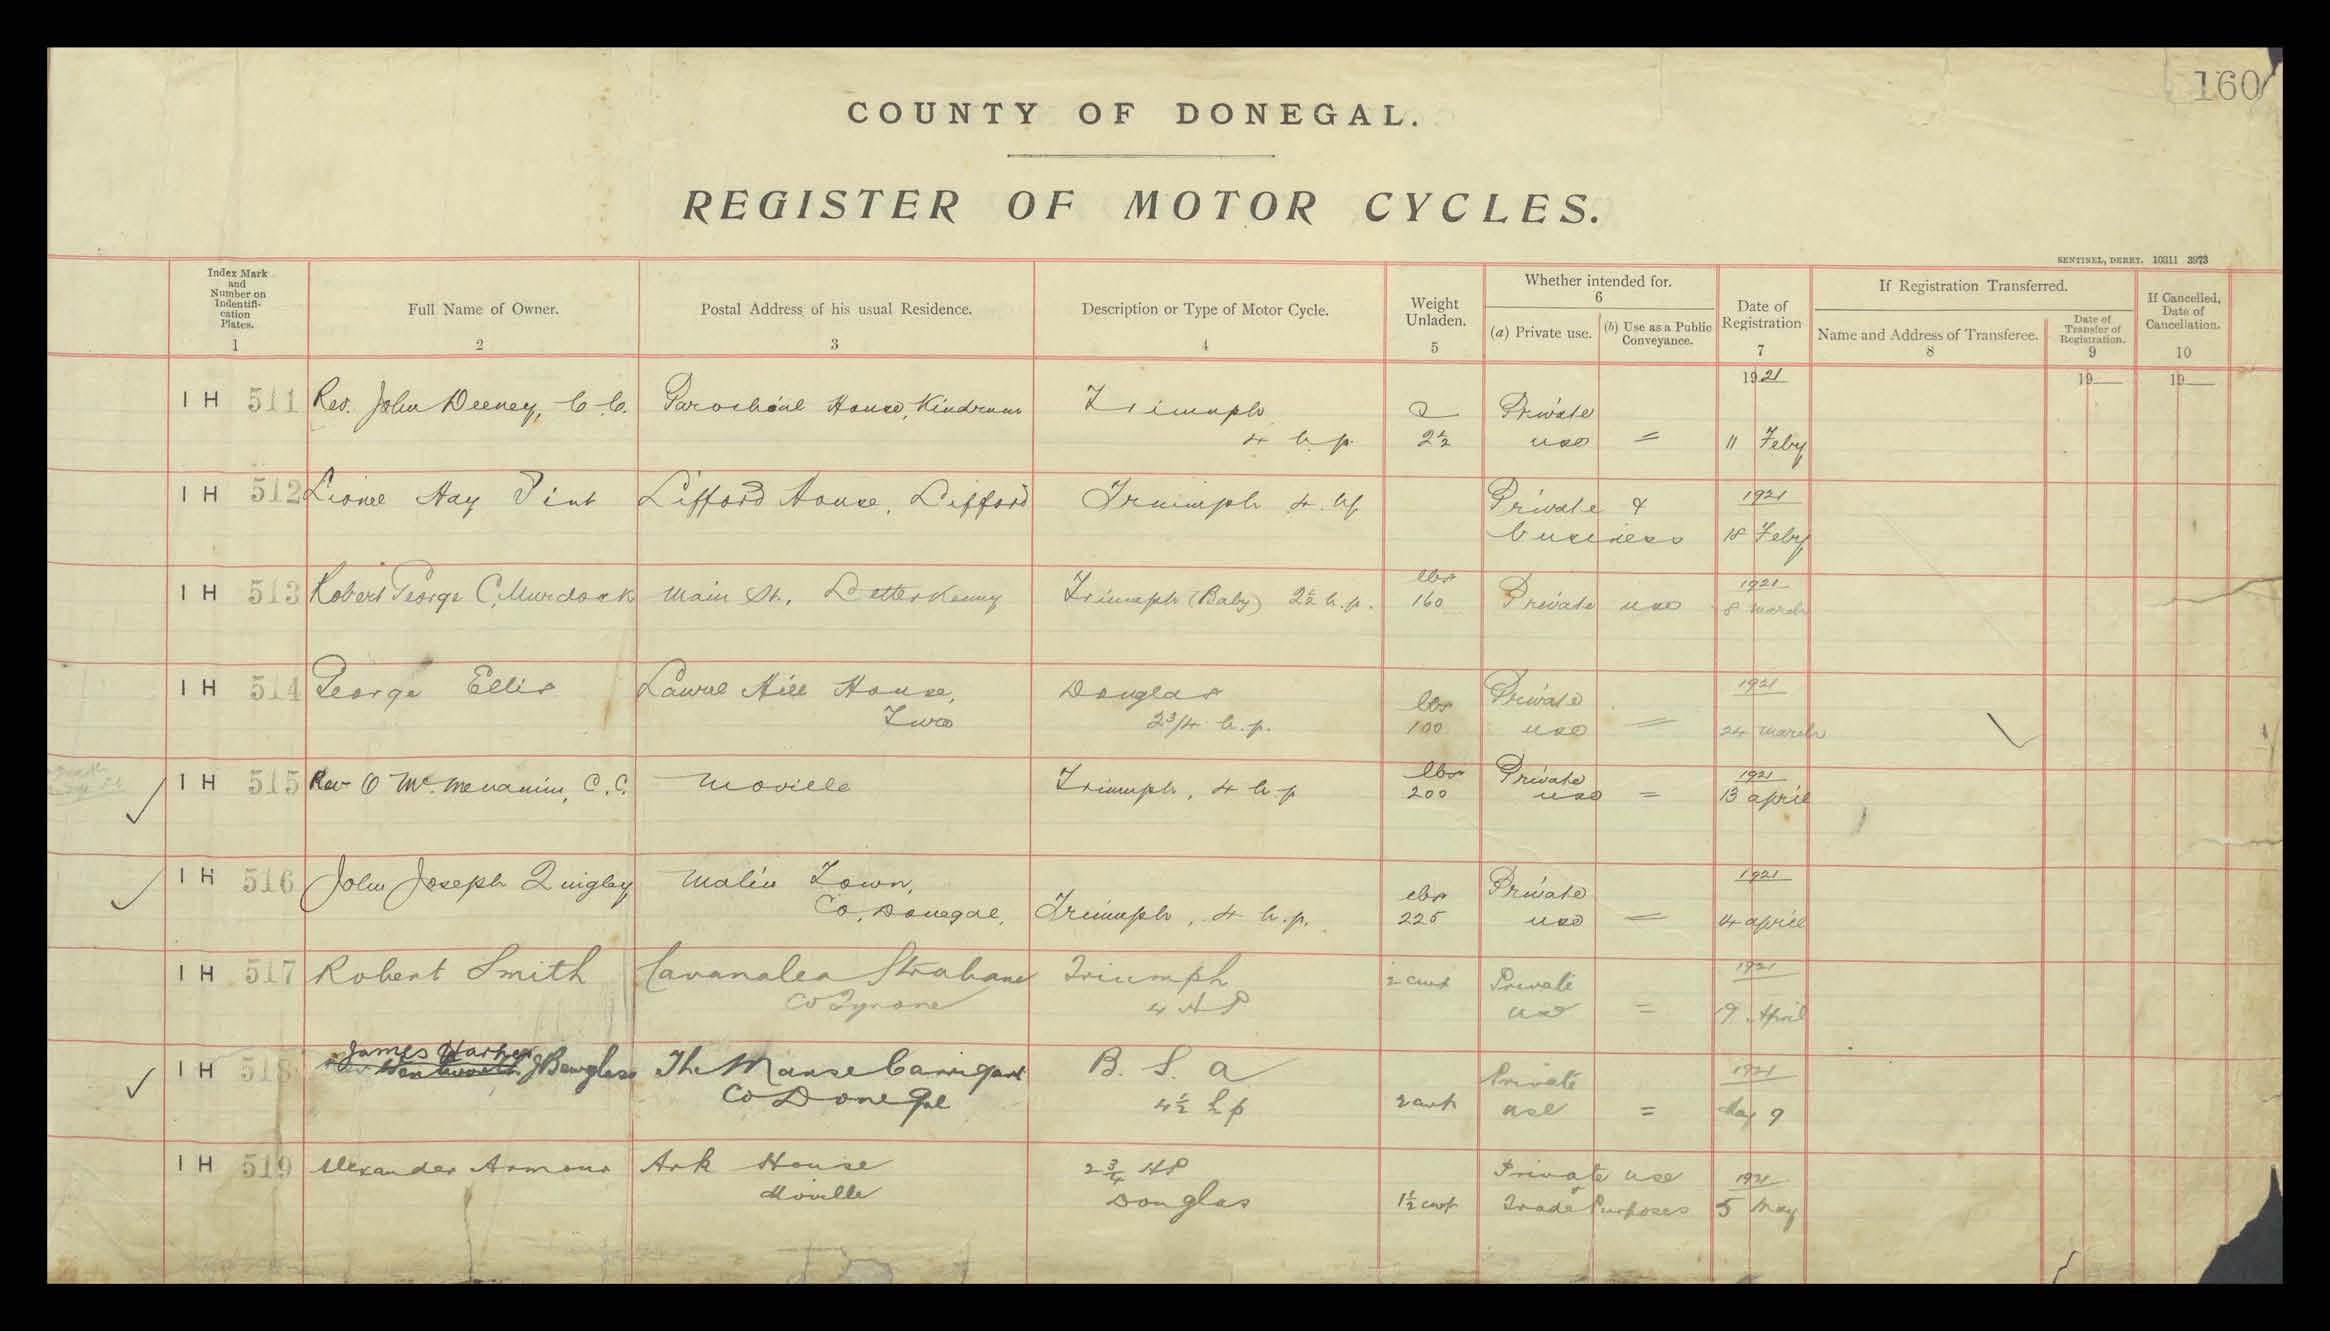 160
COUNTY OF DONEGAL.
REGISTER OF MOTOR CYCLES.
SENTINEL, DERRY. 10311 3973
Index Mark and Number on Indentifi- cation Plates. 1
Full Name of Owner. 2
Postal Address of his usual Residence. 3
Description or Type of Motor Cycle. 4
Weight Unladen. 5
Whether intended for. 6
(a) Private use.
(b) Use as a Public Conveyance.
Date of Registration 7
If Registration Transferred.
Name and Address of Transferee. 8
Date of Transfer of Registration. 9
If Cancelled, Date of Cancellation. 10
1921 19 19
I H 511 Rev. John Deeney, C.C. Parochial House, Kindrum Triumph Private
4 h.p. 2½ use = 11 Feby
I H 512 Lionel Hay Lifford House, Lifford Triumph 4 hp Private & 1921
business 18 Feby
I H 513 Robert George C. Murdock Main St., Letterkenny Triumph (Baby) 2½ h.p. lbs 160 Private use 1921
8 March
I H 514 George Ellis Laurel Hill House, Douglas lbs Private 1921
2 3/4 h.p. 100 use = 24 March
I H 515 Rev O McMenamin, C.C. Moville Triumph, 4 h.p lbs Private 1921
200 use = 13 April
I H 516 John Joseph Quigley Malin Town, lbs Private 1921
Co. Donegal, Triumph, 4 h.p. 225 use = 14 April
I H 517 Robert Smith Cavanalea Strabane Triumph 2 cwt Private 1921
Co Tyrone 4 HP use = 19 April
James Harper
I H 518 The Manse Carrigart B. S. A Private 1921
Co Donegal 4½ hp 2 cwt use = May 9
I H 519 Alexander Armour Ark House 2¾ HP Private use 1921
Moville Douglas 1½ cwt & Trade Purposes 5 May